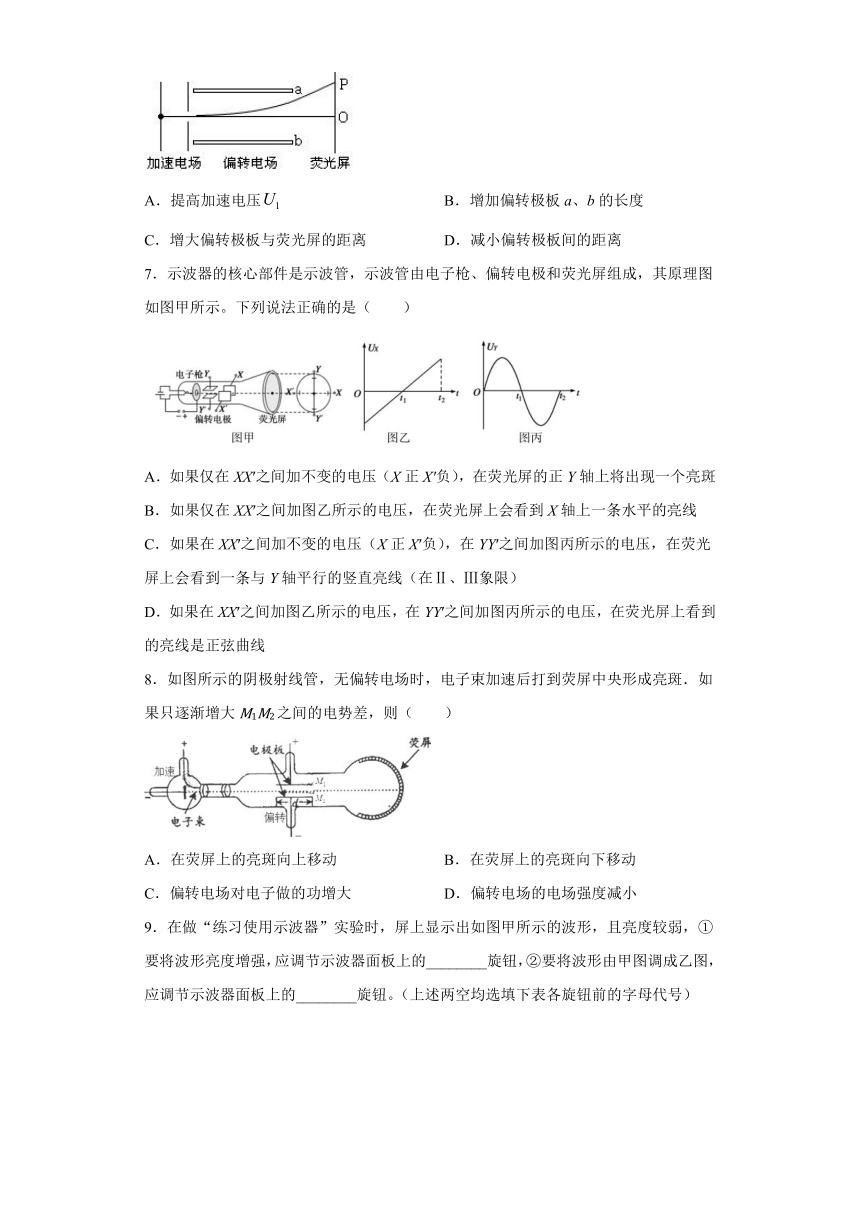 a
P
O
b
加速电场 偏转电场 荧光屏
A．提高加速电压U₁ B．增加偏转极板 a、b 的长度
C．增大偏转极板与荧光屏的距离 D．减小偏转极板间的距离
7．示波器的核心部件是示波管，示波管由电子枪、偏转电极和荧光屏组成，其原理图
如图甲所示。下列说法正确的是（ ）
电子枪 Y X Y X′ X Y′ X′ Y′ － ＋
偏转电极 荧光屏
图甲
UX O t₁ t₂ t
图乙
UY O t₁ t₂ t
图丙
A．如果仅在 XX′之间加不变的电压（X 正 X′负），在荧光屏的正 Y 轴上将出现一个亮斑
B．如果仅在 XX′之间加图乙所示的电压，在荧光屏上会看到 X 轴上一条水平的亮线
C．如果在 XX′之间加不变的电压（X 正 X′负），在 YY′之间加图丙所示的电压，在荧光
屏上会看到一条与 Y 轴平行的竖直亮线（在Ⅱ、Ⅲ象限）
D．如果在 XX′之间加图乙所示的电压，在 YY′之间加图丙所示的电压，在荧光屏上看到
的亮线是正弦曲线
8．如图所示的阴极射线管，无偏转电场时，电子束加速后打到荧屏中央形成亮斑．如
果只逐渐增大 M₁M₂ 之间的电势差，则（ ）
＋ 电极板 ＋ 荧屏
加速 M₁
－ M₂
电子束 d
偏转
－
A．在荧屏上的亮斑向上移动 B．在荧屏上的亮斑向下移动
C．偏转电场对电子做的功增大 D．偏转电场的电场强度减小
9．在做“练习使用示波器”实验时，屏上显示出如图甲所示的波形，且亮度较弱，①
要将波形亮度增强，应调节示波器面板上的________旋钮，②要将波形由甲图调成乙图，
应调节示波器面板上的________旋钮。（上述两空均选填下表各旋钮前的字母代号）